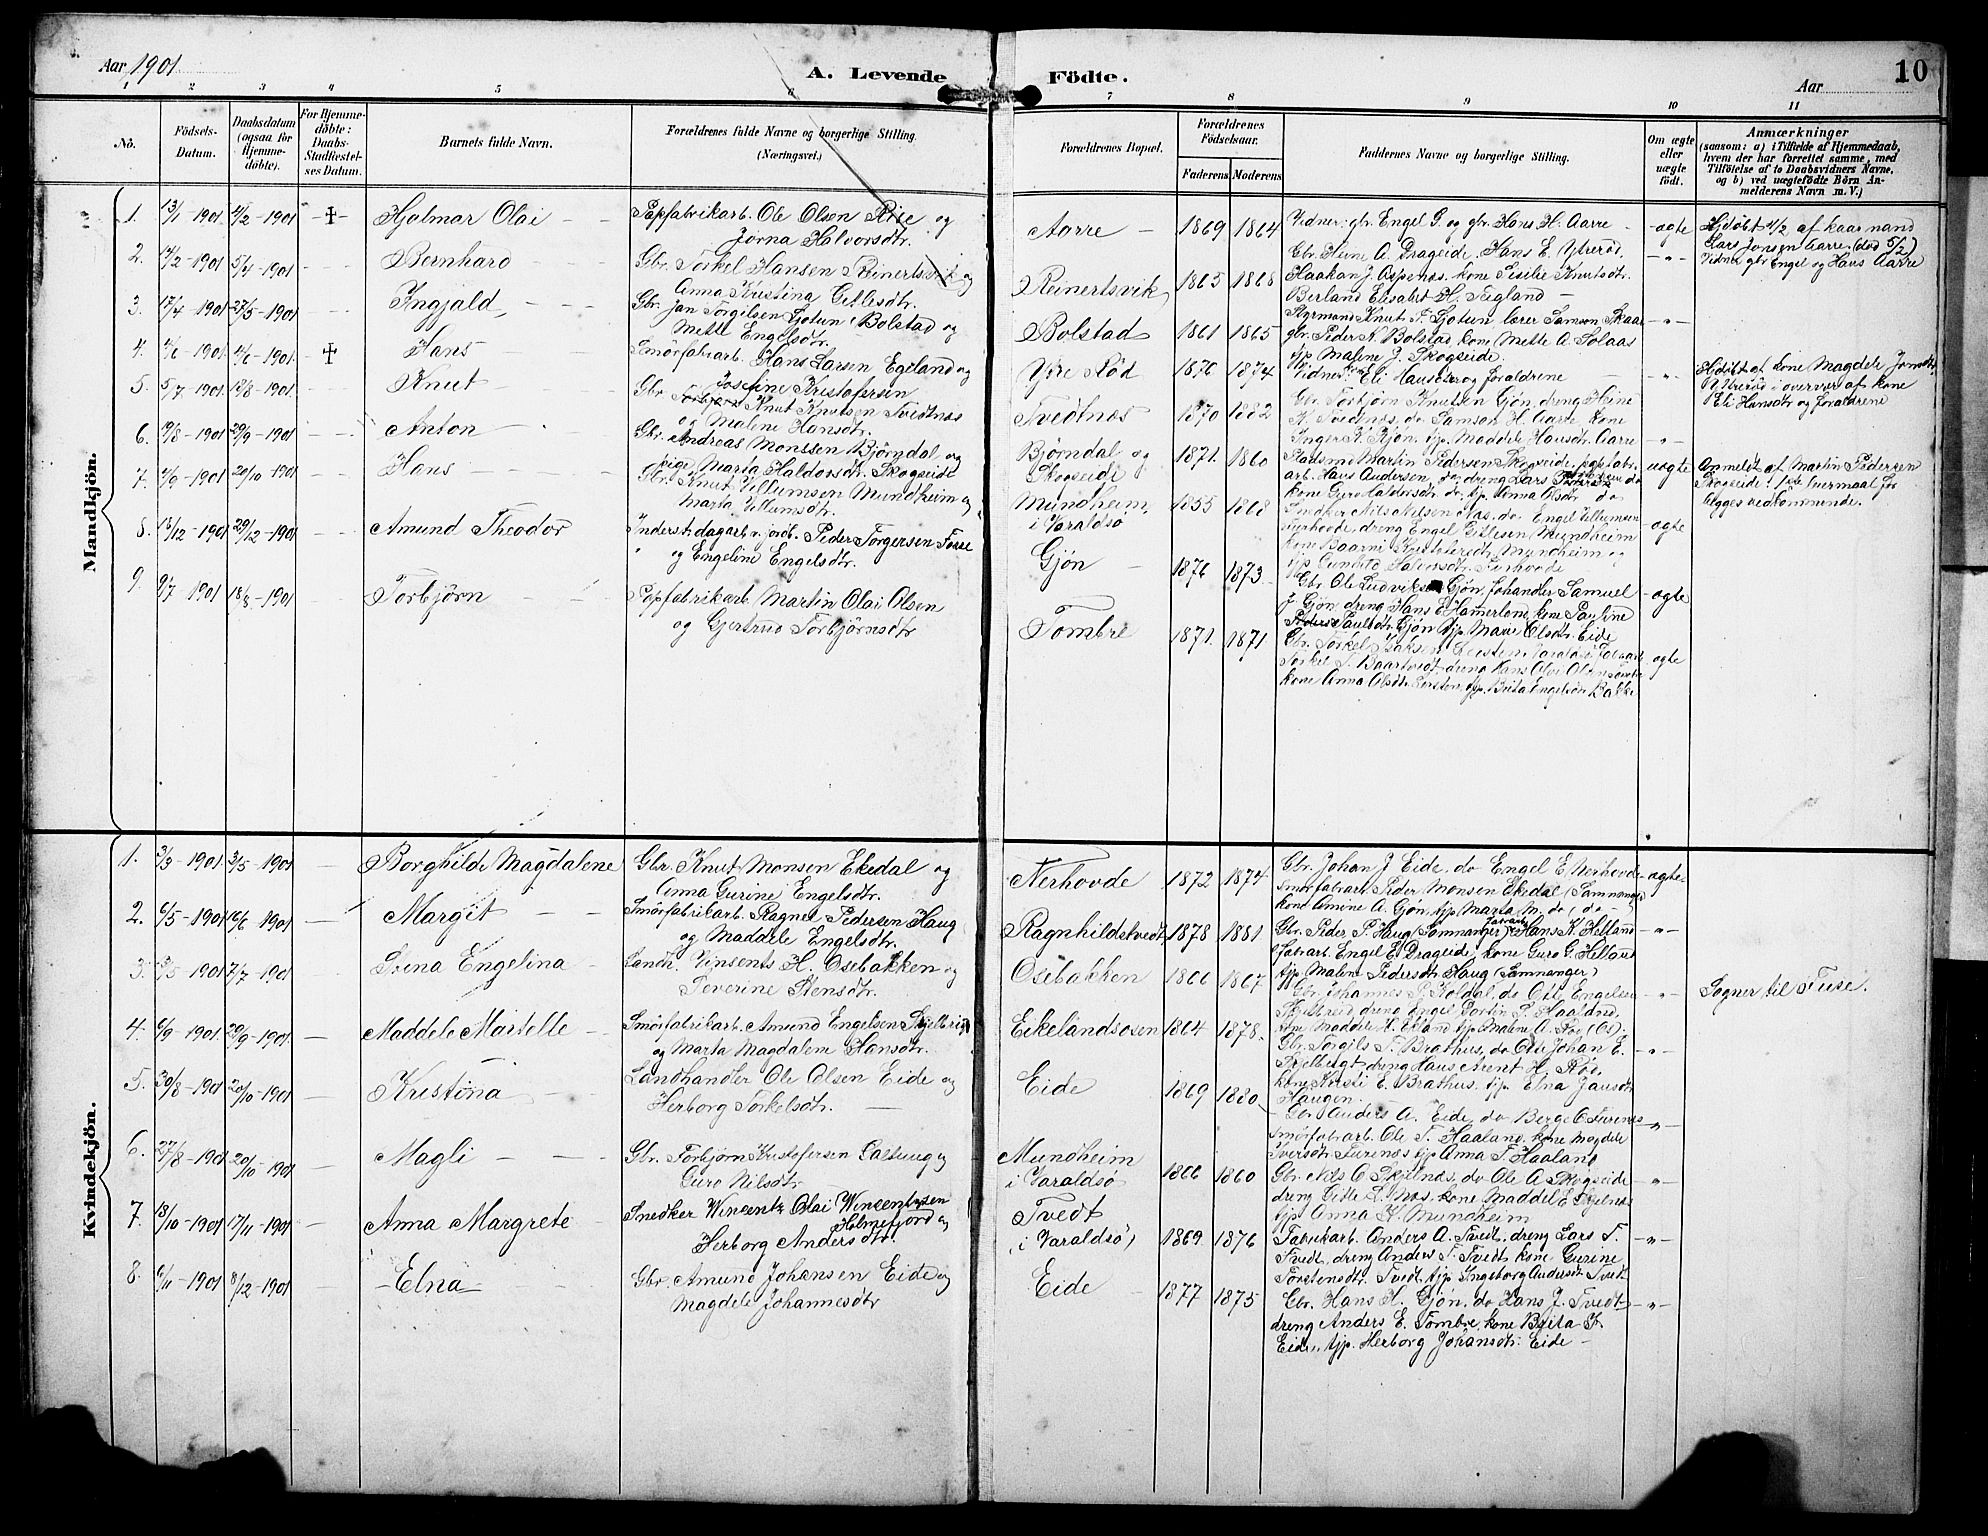 Aar 1901
A. Levende Födte.
Aar
10
1 2 3 4 5 6 7 8 9 10 11
No.
Födsels-Datum.
Daabsdatum (ogsaa for Hjemmedöbte).
For Hjemmedöbte: Daabs-Stadfæstelses Datum.
Barnets fulde Navn.
Forældrenes fulde Navne og borgerlige Stilling. (Næringsvei.)
Forældrenes Bopæl.
Forældrenes Födselsaar.
Faderens Moderens
Faddernes Navne og borgerlige Stilling.
Om ægte eller uægte født.
Anmærkninger (saasom: a) i Tilfælde af Hjemmedaab, hvem der har forrettet samme, med Tilföielse af to Daabsvidners Navne, og b) ved uægtefödte Börn Anmelderens Navn m. V.)
Mandkjön.
1. 13/1 - 1901 4/2 - 1901 Hjalmar Olai
Papfabrikarb. Ole Olsen Rise og
Jorna Halvorsdtr.
Aarre 1869 1864
Vidner: gbr. Engel G. og gbr. Hans H. Aarre
ægte
Hjdöbt 4/2 af kaarmand
Lars Jonsen Aarre (död 5/2)
Vidner gbr Engel og Hans Aarre
2. 14/2 - 1901 5/4 - 1901 Bernhard
Gbr. Torkel Hansen Reinertsvik og
Anna Kristina Gitlesdtr.
Reinertsvik 1865 1868
Gbr. Heine A. Drageide, Hans E. Ytreröd
Haakon J. Aspenæs, kone Sisilie Knutsdtr.
Berland Elisabet H. Tegland
3. 17/4 - 1901 27/5 - 1901 Ingjald
Gbr. Jan Torgilsen Gjotun Bolstad og
Mette Engelsdtr.
Bolstad 1861 1865
Styrmand Knut T. Gjotun, lærer Samson Skaar
gbr. Peder N. Bolstad, kone Mette A. Solaas
tjp Malene J. Skogseide
4. 4/6 - 1901 4/6 - 1901 Hans
Smörfabrarb. Hans Larsen Egeland og
Josefine Kristofersen
Ytre Röd 1876 1874
Vidner: Eli Hansdtr og forældrene
Hjdöbt af kone Magdele Jonsdtr
Ytreröd i overvær af kone
Eli Hansdtr og forældrene
5. 5/7 - 1901 18/8 - 1901 Knut
Gbr. Knut Knutsen Tvedtnæs
og Malene Hansdtr.
Tvedtnæs 1870 1882
Gbr. Torbjörn Knutsen Gjön, dreng Heine
K. Tvedtnæs, do Samson H. Aarre kone
Inger K. Gjön, tjp. Maddele Hansdtr. Aarre
6. 19/8 - 1901 29/9 - 1901 Anton
Gbr. Andreas Monssen Björndal og
pige Marta Haldorsdtr. Skogseide
Björndal og
Skogseide 1871 1860
Pladsmd Martin Pedersen Skogseide, papfabr.
arb. Hans Andersen, do, dreng Lars
kone Guro Haldorsdtr. do. tjp. Anna Olsdtr. do
uægte
Anmeldt af Martin Pedersen
Skogseide. 1ste leiermaal for
begges vedkommende.
7. 7/9 - 1901 20/10 - 1901 Hans
Gbr. Knut Villumsen Mundheim og
Marta Villumsdtr.
Mundheim
i Varaldsö 1855 1868
Snedker Nils Nilsen Næs, do. Engel Villumsen
Nerhovde, dreng Engel Gitlesen Mundheim
kone Baarni Kristofersdtr. Mundheim og
tjp. Gunhild Halvorsdtr. Nerhovde
ægte
8. 15/12 - 1901 29/12 - 1901 Amund Theodor
Inderst. dagarb. v. jordb. Peder Torgersen Fosse
og Engeline Engelsdtr.
Gjön 1876 1873
Gbr. Ole Ludviksen Gjön, Johander Samuel
J. Gjön, dreng Hans E. Hamerlone, kone Pauline
Paulsdtr. Gjön tjp. Mari Olsdtr. Eide
ægte
9. 9/7 - 1901 18/8 - 1901 Torbjörn
Papfabrikarb Martin Olai Olsen
og Gjertrud Torbjörnsdtr
Tombre 1871 1871
Gbr. Torkel Isaksen
Torkel T. Baartvedt, dreng Hans
kone Anna Olsdtr. tjp. Brita Engelsdtr. Bakke
ægte
Kvindekjön.
1. 3/3 - 1901 3/5 - 1901 Borghilde Magdalene
Gbr. Knut Monsen Ekedal og
Anna Gurine Engelsdtr.
Nerhovde 1872 1874
Gbr. Johan J. Eide, do Engel E. Nerhovde
Smörfabrarb Peder Monsen Ekedal (Samnanger)
kone Amine A. Gjön, tjp. Marta M. do (do)
ægte
2. 6/5 - 1901 16/6 - 1901 Margit
Smörfabrikarb. Ragner Pedersen Haug
og Maddele Engelsdtr.
Ragnhildstvedt 1878 1881
Gbr. Peder P. Haug (Samnanger) Hans K. Helland
Fabrarb. Engel E. Drageide, kone Guro G. Helland
tjp. Malene Pedersdtr. Haug (Samnanger)
3. 7/7 1901 Trena Engelina
Landh. Vinsents H. Osebakken og
Severine Stensdtr.
Osebakken 1866 1867
Gbr. Johannes P. Koldal, do Otte Engelsen
Skjelbreid, dreng Engel Portin P. Haaldne
tjp Maline A. Foe (Os).
Sogner til Fuse.
4. 6/9 - 1901 29/9 - 1901 Maddele Martelle
Smörfabrikarb. Amund Engelsen
og Marta Magdalene Hansdtr.
Eikelandsosen 1864 1878
Gbr. Torgils T. Brathus, do Ole Johan E.
dreng Hans Arent H. Röe
kone Kirsti E. Brathus, tjp. Elna Jansdtr
Haugen.
5. 30/8 - 1901 20/10 - 1901 Kristina
Landhandler Ole Olsen Eide og
Herborg Torkelsdtr.
Eide 1869 1880
Gbr. Anders A. Eide, do Berge O. Furenæs
Smörfabrarb. Ole T. Haaland, kone Magdele
Iversdtr Furenæs tjp Anna T. Haaland
6. 27/8 - 1901 20/10 - 1901 Magli
Gbr. Torbjörn Kristofersen Caltung og
Guro Nilsdtr.
Mundheim
i Varaldsö 1866 1860
Gbr. Nils O. Skjelnæs, do Ole A. Skogseide
dreng Gitle L. Næs, kone Maddel E. Skjelnæs
tjp. Anna K. Mundheim
7. 18/10 - 1901 17/11 - 1901 Anna Margrete
Snedker Wincentz Olai Wincentzsen
Holmefjord og
Herborg Andersdtr.
Tvedt
(i Varaldsö) 1869 1876
Fabrikarb. Anders A. Tvedt, dreng Lars T.
Tvedt, dreng Anders T. Tvedt, kone Gurine
Torstensdtr. Tvedt, tjp. Ingeborg Andersdtr Tvedt
8. 6/11 - 1901 8/12 - 1901 Elna
Gbr. Amund Johansen Eide og
Magdele Johannesdtr
Eide 1877 1875
Gbr. Hans H. Gjön, do Hans J. Tvedt
dreng Anders E. Tombre, kone Brita K.
Eide, tjp. Herborg Johansdtr: Eide